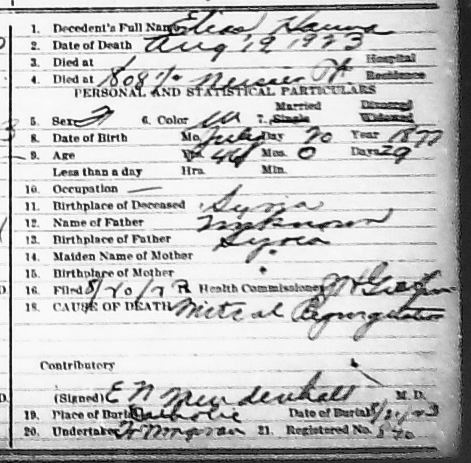 1. Decedent's Full Name Elias Hanna
2. Date of Death Aug 19 1923
3. Died at Hospital
4. Died at 808½ Residence
PERSONAL AND STATISTICAL PARTICULARS
5. Sex 6. Color W 7. Married Single Divorced Widowed
8. Date of Birth Mo. July Day 20 Year 1877
9. Age Yrs. 46 Mos. 0 Days 29
Less than a day Hrs. Min.
10. Occupation —
11. Birthplace of Deceased Syria
12. Name of Father Unknown
13. Birthplace of Father Syria
14. Maiden Name of Mother
15. Birthplace of Mother
16. Filed 8/20/23 Health Commissioner
18. CAUSE OF DEATH Mitral Regurgitation
Contributory
(Signed) E N Mendenhall M. D.
19. Place of Burial Catholic Date of Burial 8/21/23
20. Undertaker 21. Registered No. 590